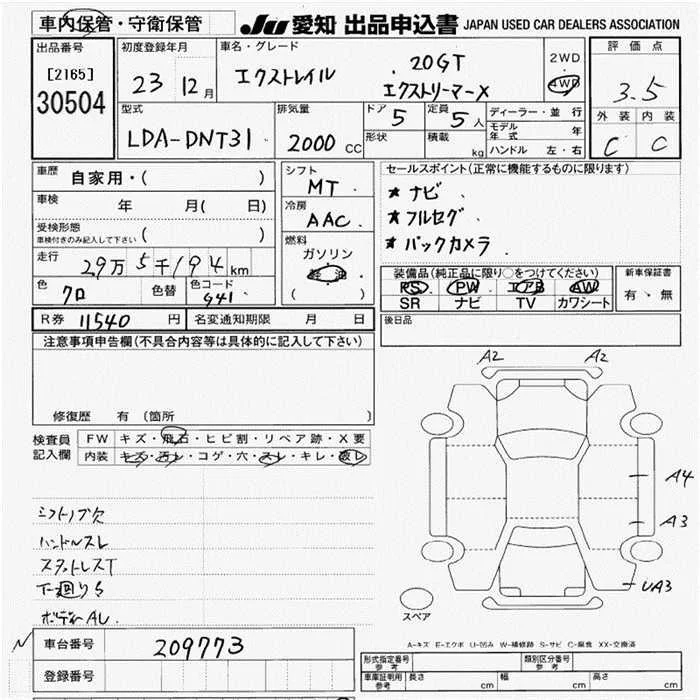 車内保管・守衛保管
JU 愛知 出品申込書 JAPAN USED CAR DEALERS ASSOCIATION
出品番号
[2165]
30504
初度登録年月
23 12月
車名・グレード
エクストレイル 20GT
エクストリーマーX
2WD
4WD
評価点
3.5
外装 内装
C C
型式
LDA-DNT31
排気量
2000 CC
ドア 5
形状
定員 5人
積載 kg
ディーラー・並行
モデル年式 年
ハンドル 左・右
車歴 自家用・( )
車検 年 月( 日)
受検形態
車検付きのみ記入して下さい ( )
走行 29万5千194km
色 クロ 色替 色コード G41
シフト
MT
冷房
AAC
燃料
ガソリン
( )
セールスポイント(正常に機能するものに限ります)
★ ナビ
★ フルセグ
★ バックカメラ
装備品(純正品に限り○をつけてください)
PS PW エアB AW
SR ナビ TV カワシート
新車保証書
有・無
R券 11540 円 名変通知期限 月 日
後日品
注意事項申告欄(不具合内容等は具体的に記入して下さい)
修復歴 有 〔箇所 〕
検査員
記入欄
FW キズ・飛石・ヒビ割・リペア跡・X要
内装 キズ・汚レ・コゲ・穴・スレ・キレ・破レ
シフトノブ欠
ハンドルスレ
スタットレスT
下廻りS
ボディAU
A2 A2
A4
A3
UA3
スペア
A-キズ E-エクボ U-凹み W-補修跡 S-サビ C-腐食 XX-交換済
車台番号 209773
登録番号
型式指定番号
参考
類別区分番号
参考
車庫証明用
参考
長さ cm 幅 cm 高さ cm